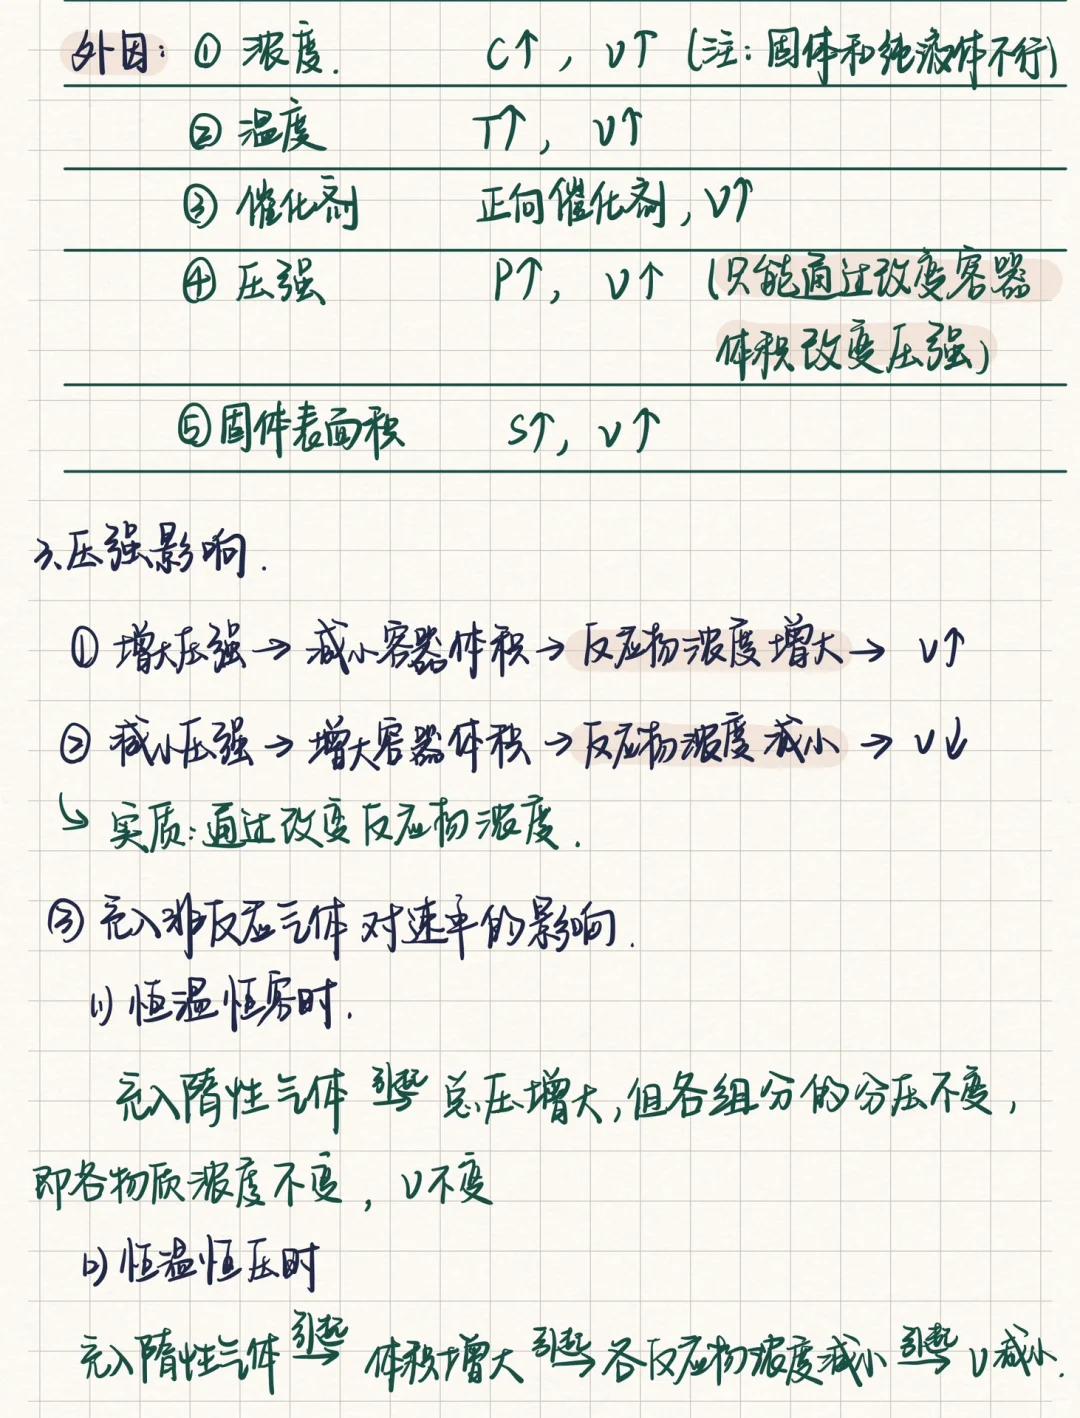 外因: ① 浓度. C↑, v↑ (注: 固体和纯液体不行)
② 温度 T↑, v↑
③ 催化剂 正向催化剂, v↑
④ 压强 P↑, v↑ (只能通过改变容器
体积改变压强)
⑤ 固体表面积 S↑, v↑
3.压强影响.
① 增大压强→减小容器体积→反应物浓度增大→ v↑
② 减小压强→增大容器体积→反应物浓度减小→ v↓
↳ 实质: 通过改变反应物浓度.
③ 充入非反应气体对速率的影响.
1) 恒温恒容时.
充入隋性气体 引起→ 总压增大, 但各组分的分压不变,
即各物质浓度不变, v不变
2) 恒温恒压时
充入隋性气体 引起→ 体积增大 引起→ 各反应物浓度减小 引起→ v减小.